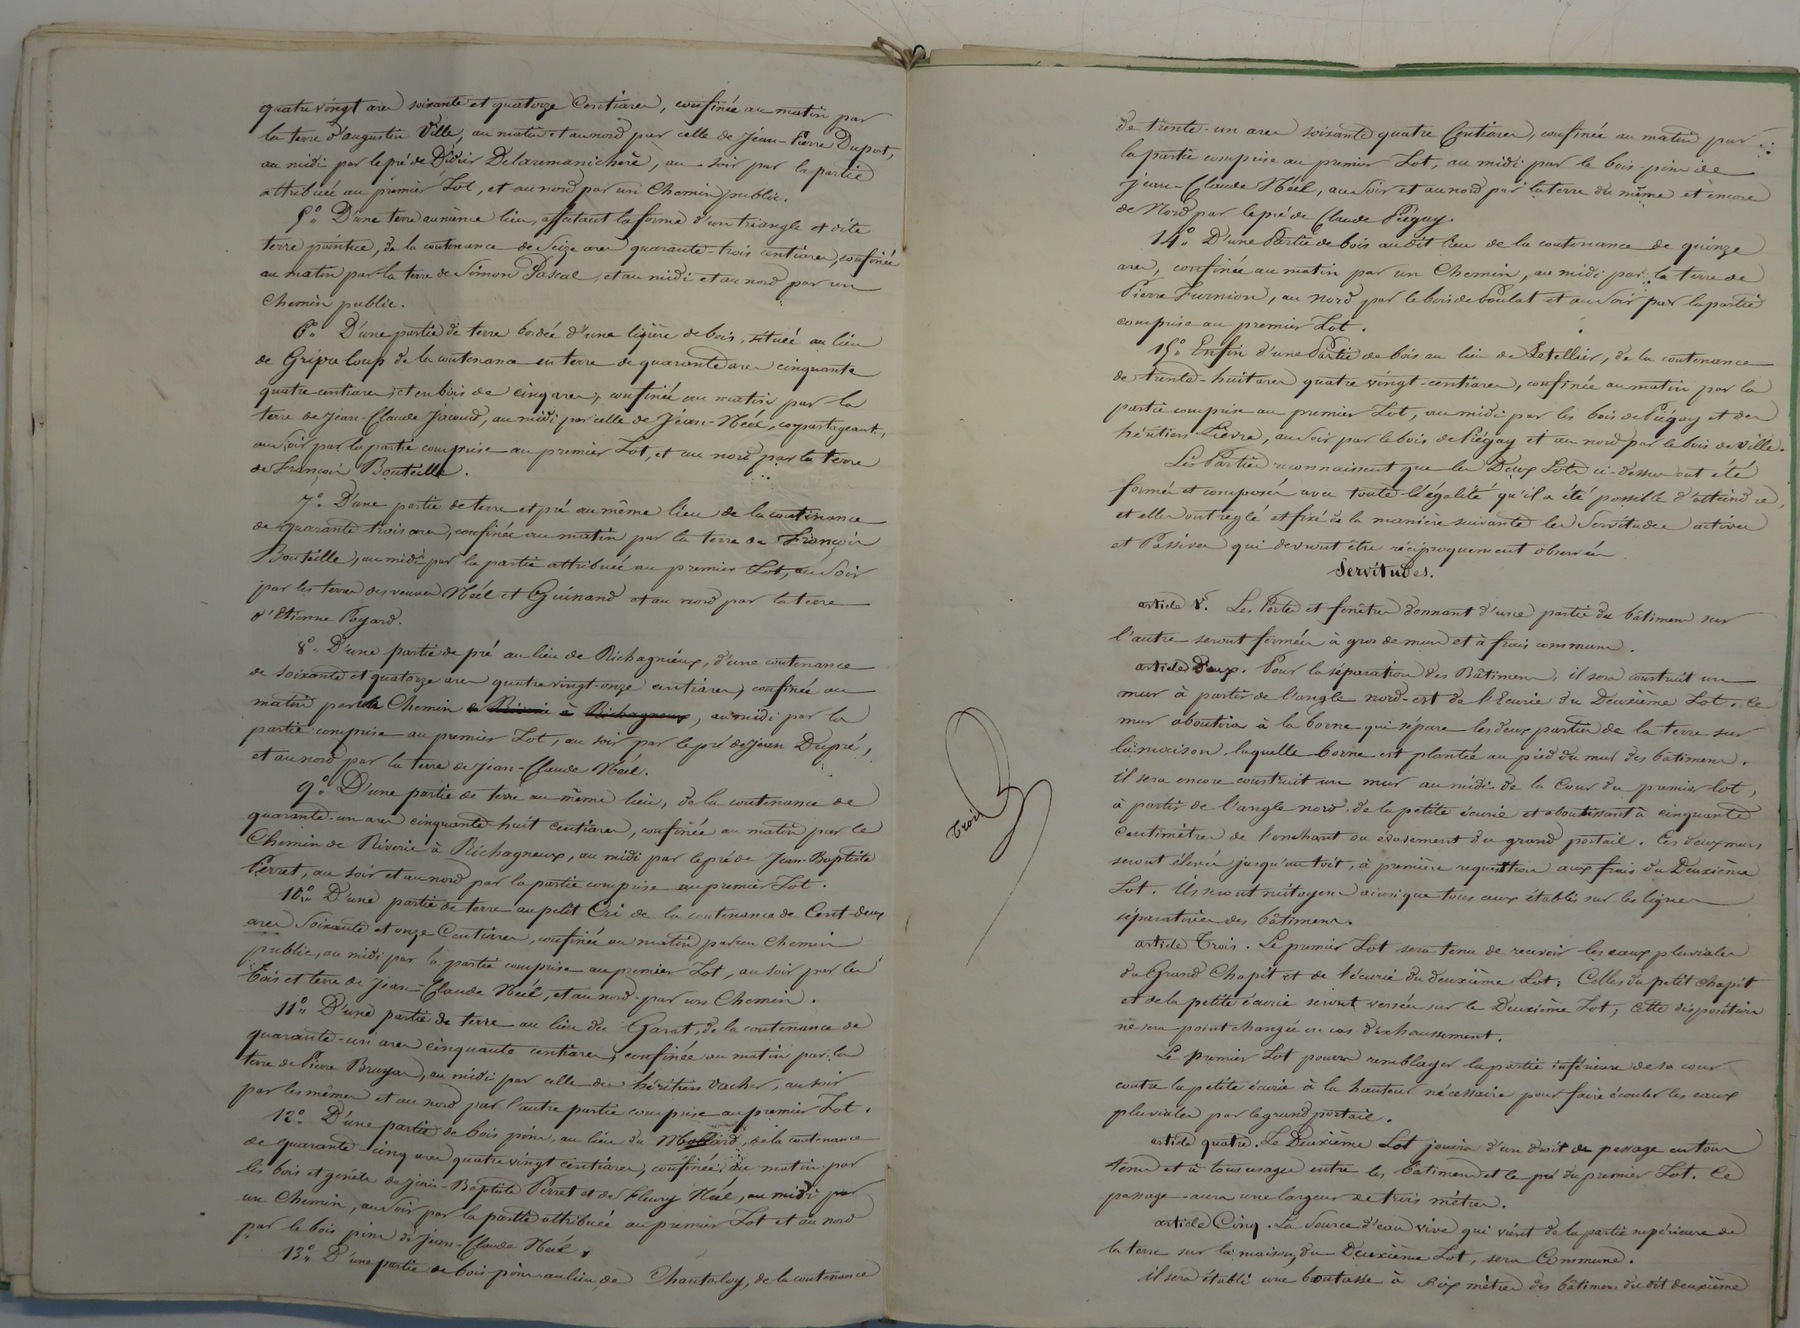 quatre vingt ares soixante et quatorze Centiares, confinée au matin par
la terre d'augustin Ville, au matin et au nord par celle de Jean-Pierre Duport,
au midi par le pré de Didier Delaremanichère, au soir par la partie
attribuée au premier Lot, et au nord par un Chemin public.
5° D'une terre au même lieu, affectant la forme d'un triangle et dite
terre pointue, de la contenance de Seize ares quarante-trois centiares, confinée
au matin par la terre de Simon Pascal, et au midi et au nord par un
Chemin public.
6° D'une partie de terre bordée d'une lizière de bois, située au lieu
de Gripe loup de la contenance en terre de quarante ares cinquante
quatre centiares et en bois de cinq ares, confinée au matin par la
terre de Jean-Claude Jacoud, au midi par celle de Jean-Néel, copartageant,
au Soir par la partie comprise au premier Lot, et au nord par la terre
de François Bouteille.
7° D'une partie de terre et pré au même lieu de la contenance
de quarante trois ares, confinée au matin par la terre de François
Bouteille, au midi par la partie attribuée au premier Lot, au Soir
par les terres des veuves Néel et Guinand et au nord par la terre
d'Etienne Poyard.
8° D'une partie de pré au lieu de Richagnieux, d'une contenance
de soixante et quatorze ares quatre vingt-onze centiares, confinée au
matin par un Chemin de Riverie à Richagneux, au midi par la
partie comprise au premier Lot, au soir par le pré de Jean Dupré,
et au nord par la terre de Jean-Claude Néel.
9° D'une partie de terre au même lieu, de la contenance de
quarante-un ares cinquante-huit Centiares, confinée au matin par le
Chemin de Riverie à Richagneux, au midi par le pré de Jean-Baptiste
Perret, au soir et au nord par la partie comprise au premier Lot.
10° D'une partie de terre au petit Cri de la contenance de Cent-deux
ares Soixante et onze Centiares, confinée au matin par un Chemin
public, au midi par la partie comprise au premier Lot, au soir par les
Bois et terre de Jean-Claude Néel, et au nord par un Chemin.
11° D'une partie de terre au lieu du Garat, de la contenance de
quarante-un ares cinquante centiares, confinée au matin par la
terre de Pierre Bruyas, au midi par celle des héritiers Vacher, au soir
par les mêmes et au nord par l'autre partie comprise au premier Lot.
12° D'une partie de bois pins, au lieu du Mollard, de la contenance
de quarante cinq ares quatre vingt centiares, confinée au matin par
les bois et genête de Jean-Baptiste Perret et de Fleury Néel, au midi par
un Chemin, au Soir par la partie attribuée au premier Lot et au nord
par le bois pins de Jean-Claude Néel.
13° D'une partie de bois pins au lieu de Chanteloy, de la contenance
trois
de trente-un ares soixante quatre Centiares, confinée au matin par
la partie comprise au premier Lot, au midi par le bois-pins de
Jean-Claude Néel, au Soir et au nord par la terre du même et encore
de Nord par le pré de Claude Piégay.
14° D'une Partie de bois au dit lieu de la contenance de quinze
ares, confinée au matin par un Chemin, au midi par la terre de
Pierre Furnion, au nord par le bois de Poulat et au Soir par la partie
comprise au premier Lot.
15° Enfin d'une Partie de bois au lieu de Letellier, de la contenance
de trente-huit ares quatre vingt-centiares, confinée au matin par la
partie comprise au premier Lot, au midi par les bois de Piégay et des
héritiers Pierre, au Soir par le bois de Piégay et au nord par le bois de ville.
Les Parties reconnaissent que les Deux Lots ci-dessus ont été
formés et composés avec toute l'égalité qu'il a été possible d'atteindre,
et elles ont réglé et fixé de la manière suivante les Servitudes actives
et Passives qui devront être réciproquement observées
Servitudes.
article 1er. Les Portes et fenêtres donnant d'une partie du bâtiment sur
l'autre seront fermées à gros de murs et à frais communs.
article Deux. Pour la séparation des Bâtimens, il sera construit un
mur à partir de l'angle nord-est de l'Ecurie du Deuxième Lot. Ce
mur aboutira à la borne qui sépare les deux parties de la terre sur
la maison laquelle borne est plantée au pied du mur des bâtimens.
il sera encore construit un mur au midi de la Cour du premier lot,
à partir de l'angle nord de la petite écurie et aboutissant à cinquante
Centimètres de l'enchant ou évasement du grand portail. Ces deux murs
seront élevés jusqu'au toit, à première requisition aux frais du Deuxième
Lot. Ils seront mitoyens ainsi que tous ceux établis sur les lignes
séparatives des bâtimens.
article Trois. Le premier Lot sera tenu de recevoir les eaux pluviales
du Grand Chapit et de l'écurie du deuxième Lot; Celles du petit chapit
et de la petite écurie seront versées sur le Deuxième Lot; Cette disposition
ne sera point changée en cas d'exhaussement.
Le premier Lot pourra remblayer la partie inférieure de sa cour
contre la petite écurie à la hauteur nécessaire pour faire écouler les eaux
pluviales par le grand portail.
article quatre. Le Deuxième Lot jouira d'un droit de passage en tous
tems et à tous usages entre les bâtimens et le pré du premier Lot. Ce
passage aura une largeur de trois mètres.
article Cinq. La Source d'eau vive qui vient de la partie supérieure de
la terre sur la maison, du Deuxième Lot, sera Commune.
il sera établi une boutasse à dix mètres des bâtimens du dit deuxième